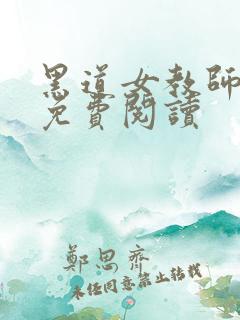 黑道女教師
免費閱讀
鄭思齊
未經同意禁止轉載